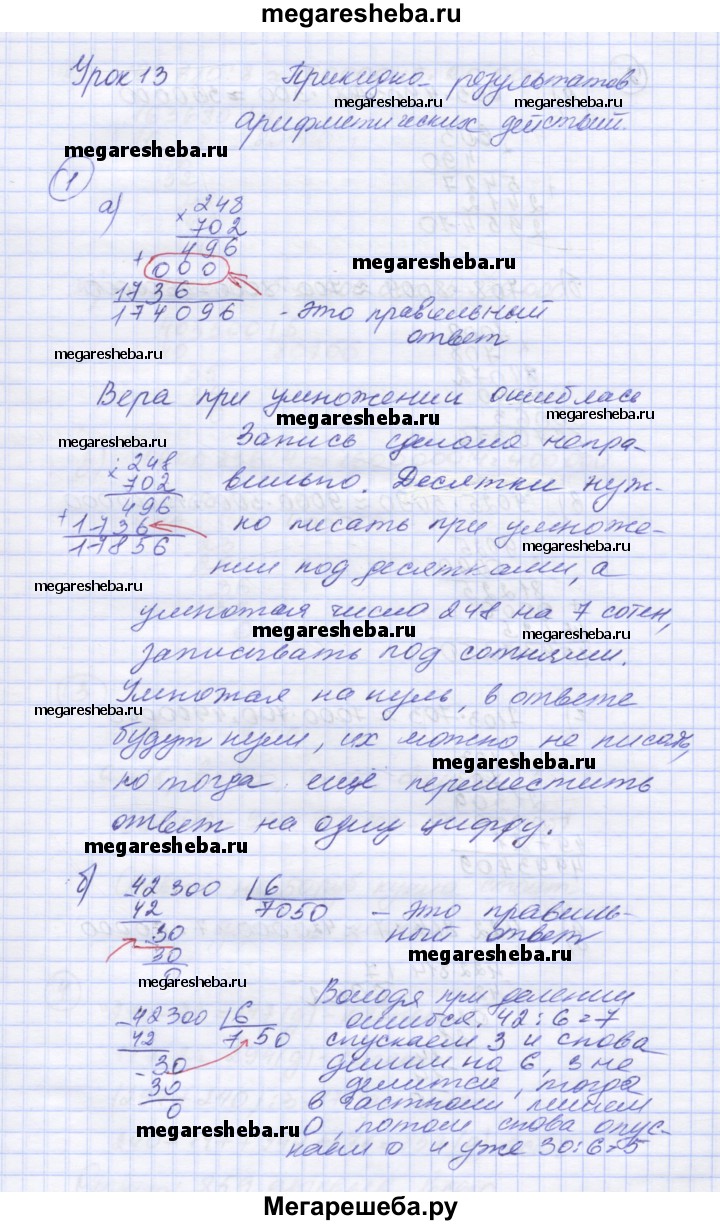 megaresheba.ru
Урок 13 Прикидка результатов
megaresheba.ru megaresheba.ru
арифметических действий.
megaresheba.ru
1
а) 248
× 702
496
+ 000
megaresheba.ru
1736
174096 - это правильный
ответ
megaresheba.ru
Вера при умножении ошиблась
megaresheba.ru
megaresheba.ru Запись сделана непра-
248
× 702 вильно. Десятки нуж-
496
+ 1736 но писать при умноже-
17856 megaresheba.ru
нии под десятками, а
megaresheba.ru
умножая число 248 на 7 сотен,
megaresheba.ru megaresheba.ru
записывать под сотнями.
Умножая на нуль, в ответе
megaresheba.ru
будут нули, их можно не писать,
megaresheba.ru
но тогда ещё переместить
ответ на одну цифру.
megaresheba.ru
б) 42300 6
42 7050 - это правиль-
30 ный ответ
megaresheba.ru
30
0 megaresheba.ru
Володя при делении
- 42300 6 ошибся. 42:6=7
megaresheba.ru
42 750 спускаем 3 и снова
- 30 делим на 6, 3 не
30 делится, тогда
0 в частном пишем
megaresheba.ru 0, потом снова опус-
каем 0 и уже 30:6=5
Мегарешеба.ру